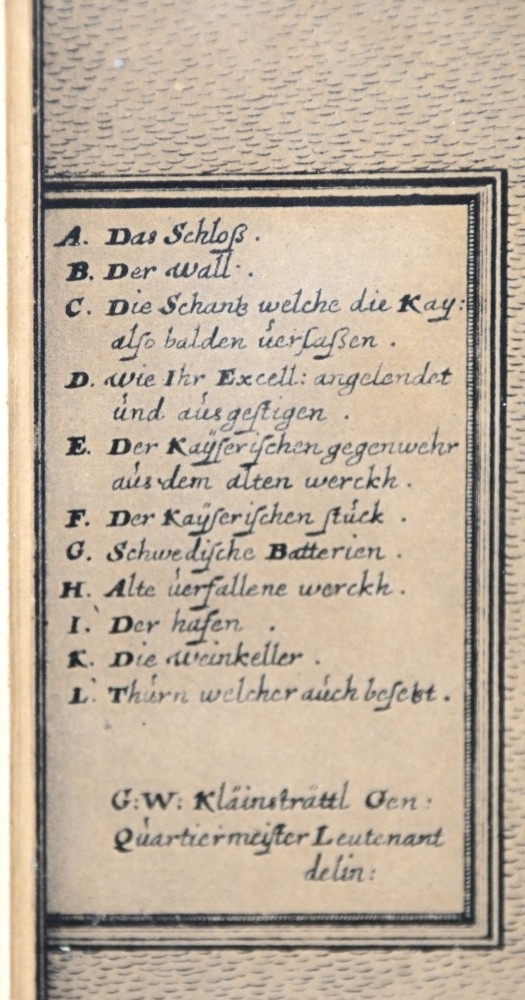 A. Das Schloß.
B. Der Wall.
C. Die Schantz welche die Kay:
also balden verlaßen.
D. Wie Ihr Excell: angelendet
und ausgestigen.
E. Der Kaÿserischen gegenwehr
aus dem alten werckh.
F. Der Kaÿserischen stück.
G. Schwedische Batterien.
H. Alte verfallene werckh.
I. Der hafen.
K. Die Weinkeller.
L. Thurn welcher auch besetzt.
G:W: Kläinsträttl Gen:
Quartiermeister Leutenant
delin: